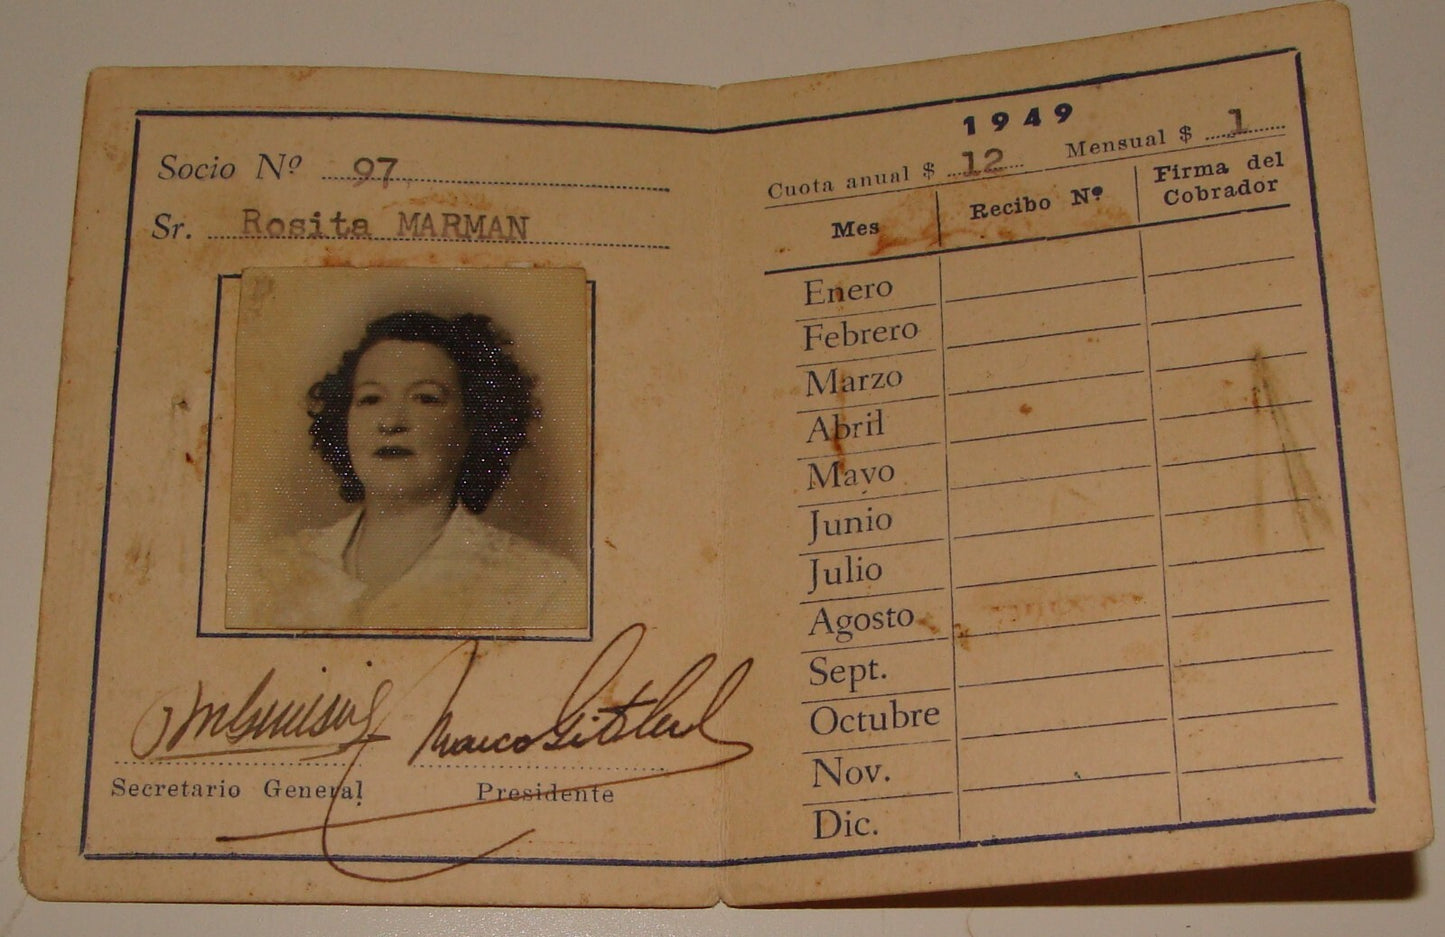 Socio Nº 97
Sr. Rosita MARMAN
Secretario General
Presidente
1949
Cuota anual $ 12 Mensual $ 1
Mes Recibo Nº Firma del Cobrador
Enero
Febrero
Marzo
Abril
Mayo
Junio
Julio
Agosto
Sept.
Octubre
Nov.
Dic.